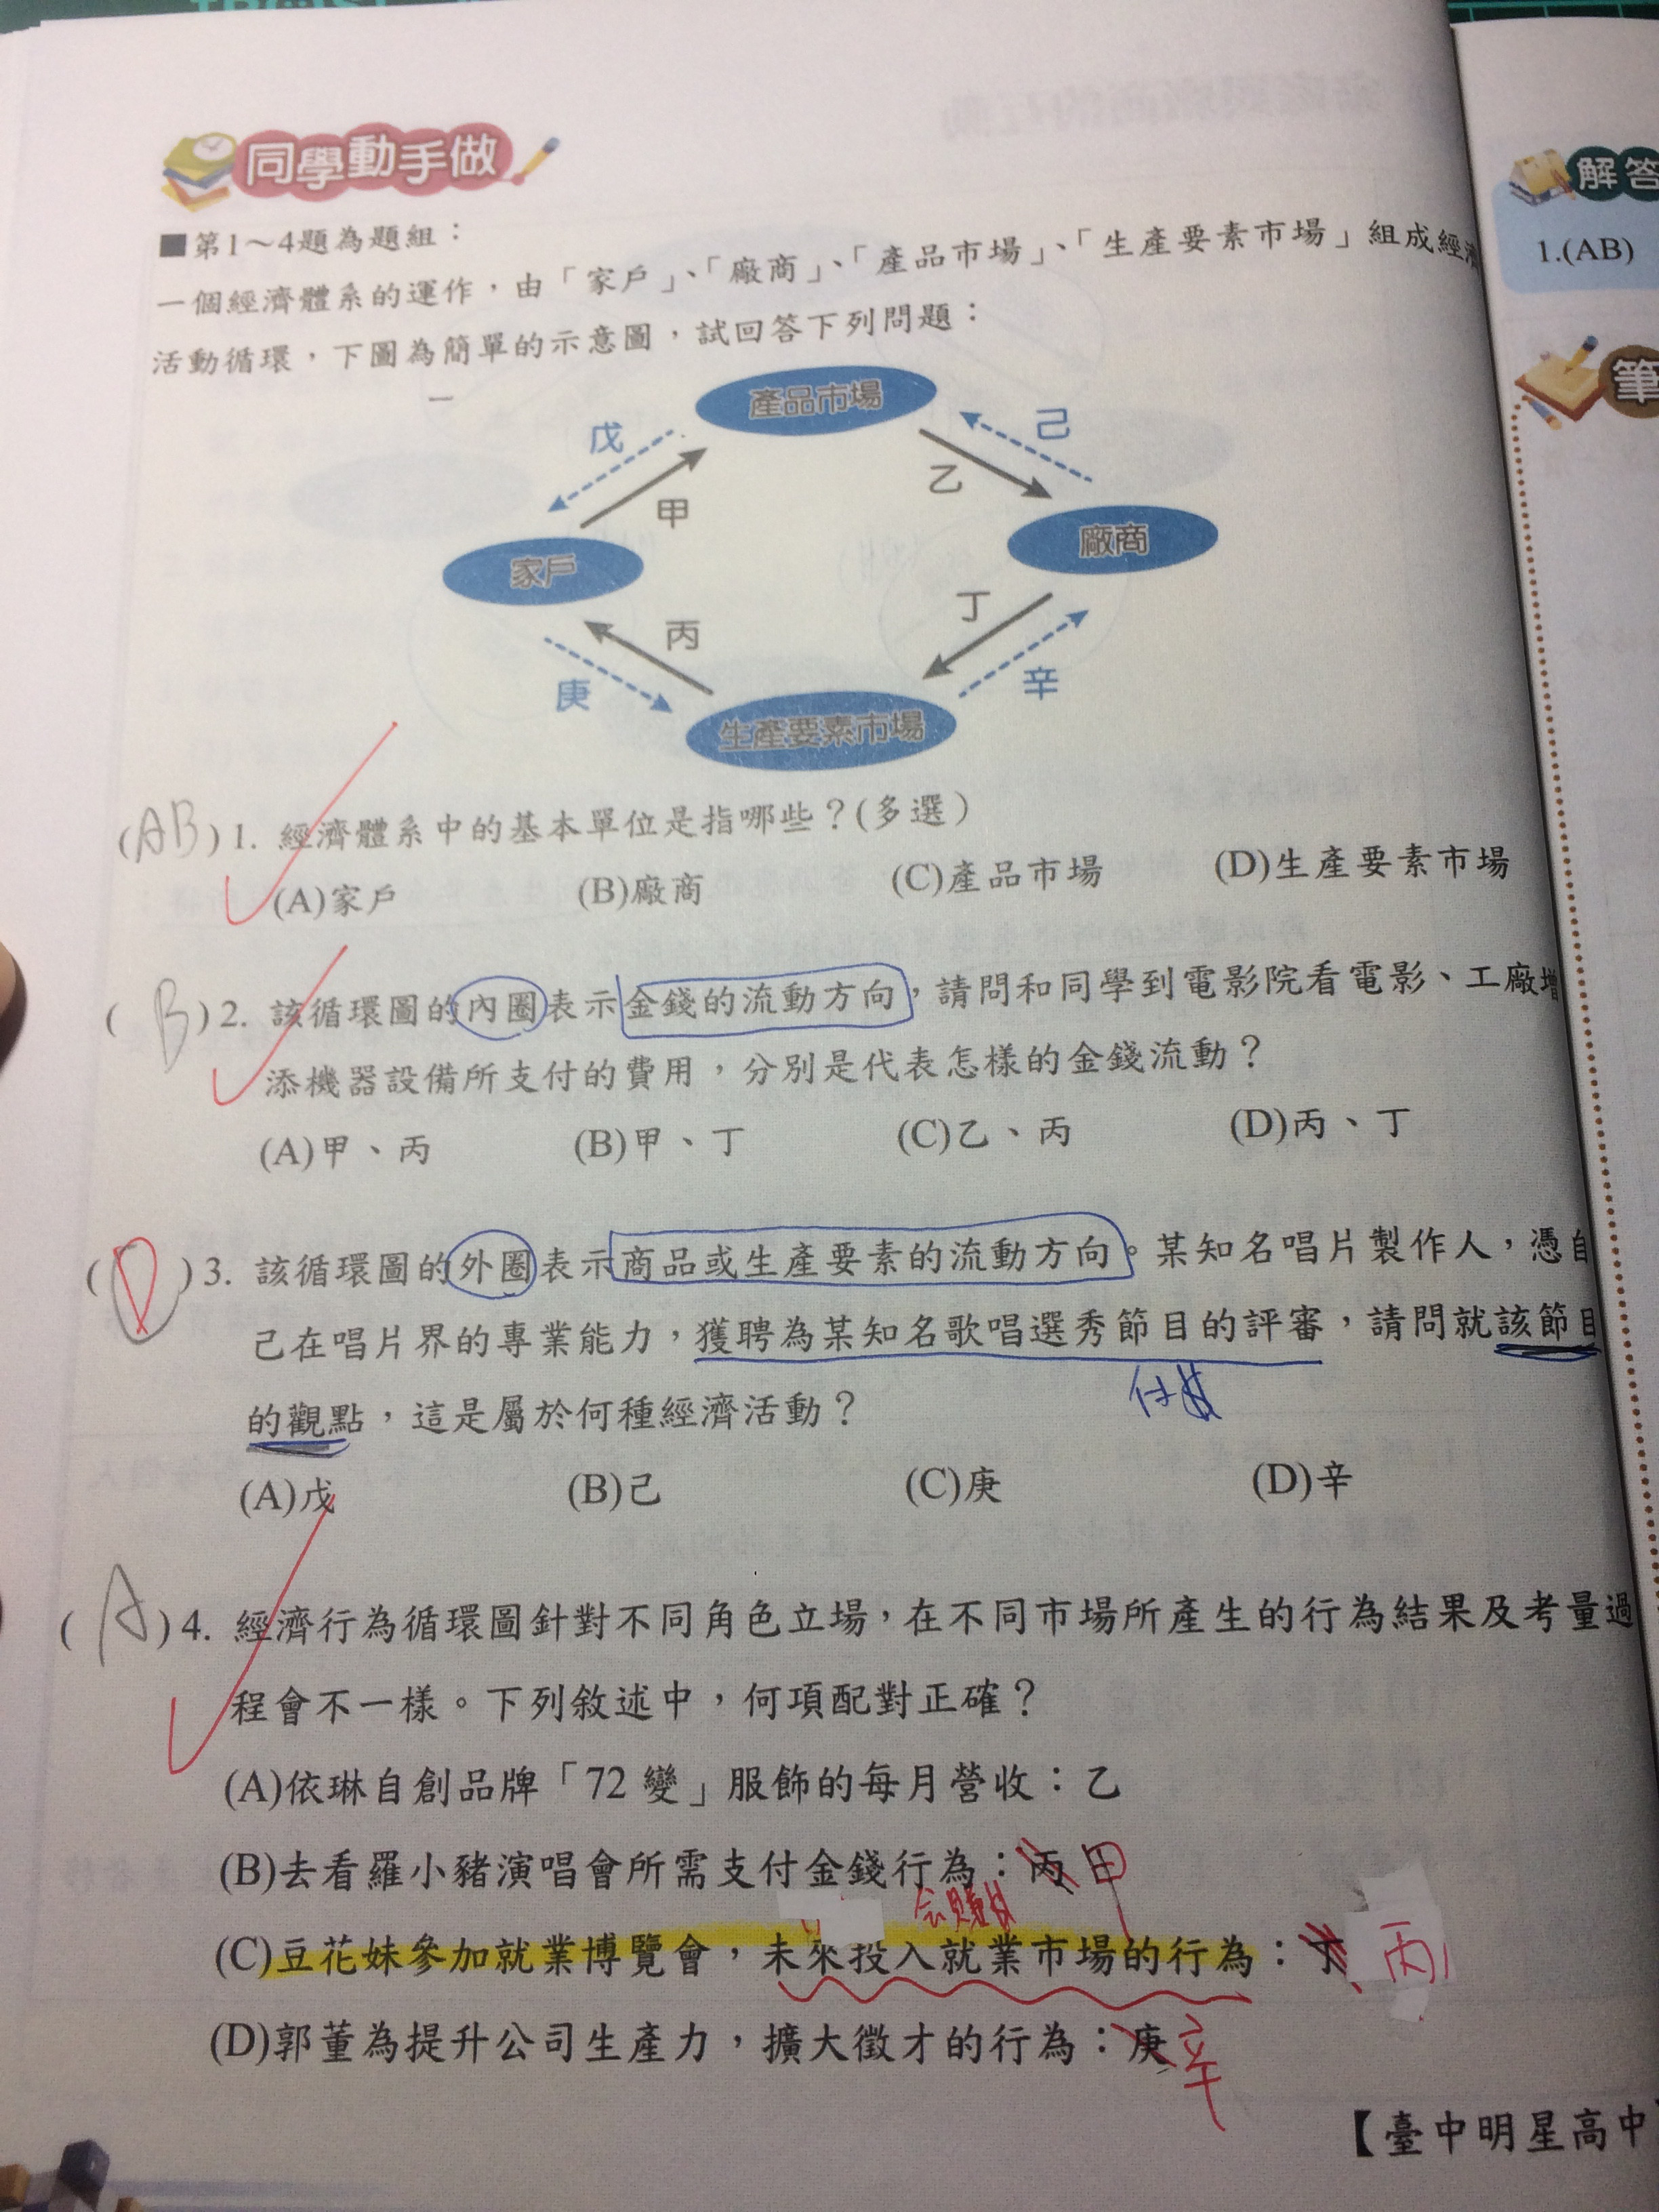 同學動手做
■第1～4題為題組：
一個經濟體系的運作，由「家戶」、「廠商」、「產品市場」、「生產要素市場」組成經濟
活動循環，下圖為簡單的示意圖，試回答下列問題：
產品市場
戊
己
甲
乙
家戶
廠商
丙
丁
庚
辛
生產要素市場
(AB)1. 經濟體系中的基本單位是指哪些？(多選)
(A)家戶 (B)廠商 (C)產品市場 (D)生產要素市場
(B)2. 該循環圖的內圈表示金錢的流動方向，請問和同學到電影院看電影、工廠增
添機器設備所支付的費用，分別是代表怎樣的金錢流動？
(A)甲、丙 (B)甲、丁 (C)乙、丙 (D)丙、丁
(D)3. 該循環圖的外圈表示商品或生產要素的流動方向。某知名唱片製作人，憑自
己在唱片界的專業能力，獲聘為某知名歌唱選秀節目的評審，請問就該節目
付$
的觀點，這是屬於何種經濟活動？
(A)戊 (B)己 (C)庚 (D)辛
(A)4. 經濟行為循環圖針對不同角色立場，在不同市場所產生的行為結果及考量過
程會不一樣。下列敘述中，何項配對正確？
(A)依琳自創品牌「72變」服飾的每月營收：乙
(B)去看羅小豬演唱會所需支付金錢行為：丙 甲
会賺$
(C)豆花妹參加就業博覽會，未來投入就業市場的行為：丁 丙
(D)郭董為提升公司生產力，擴大徵才的行為：庚 辛
【臺中明星高中
解答
1.(AB)
筆